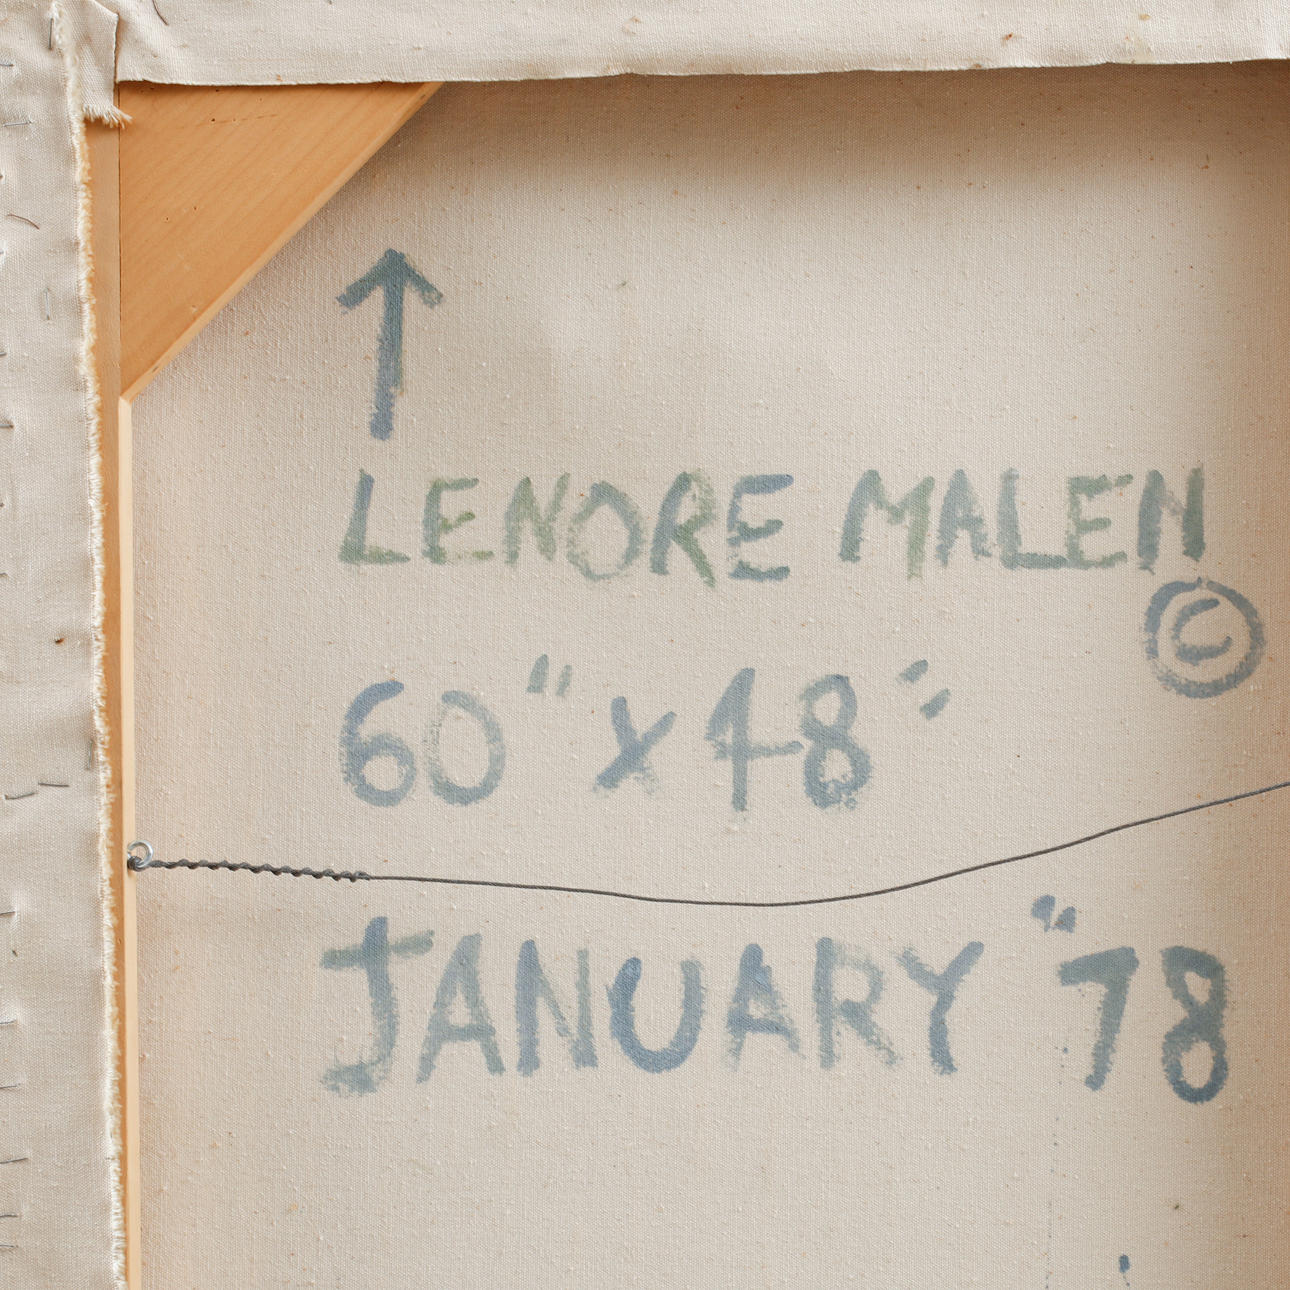 ↑
LENORE MALEN
©
60" x 48"
JANUARY "78